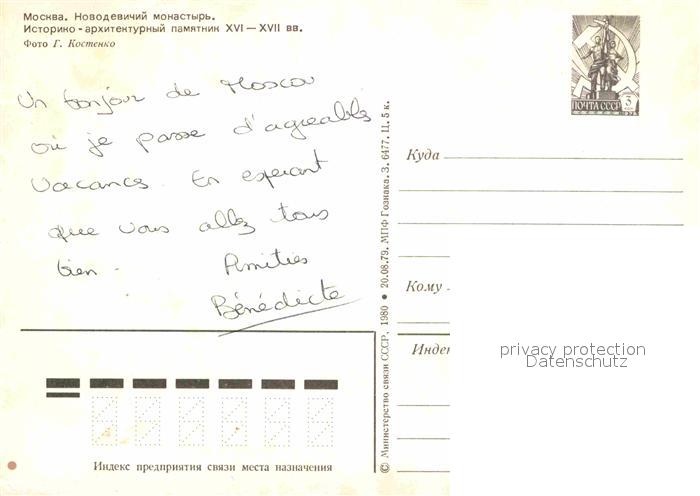 Москва. Новодевичий монастырь.
Историко-архитектурный памятник XVI—XVII вв.
Фото Г. Костенко
Un bonjour de Moscou
où je passe d'agréables
vacances. En espérant
que vous allez tous
bien. Amitiés
Bénédicte
ПОЧТА СССР 3 коп
Куда
Кому
Инде
privacy protection
Datenschutz
Индекс предприятия связи места назначения
© Министерство связи СССР, 1980 • 20.08.79. МПФ Гознака. З. 6477. Ц. 5 к.